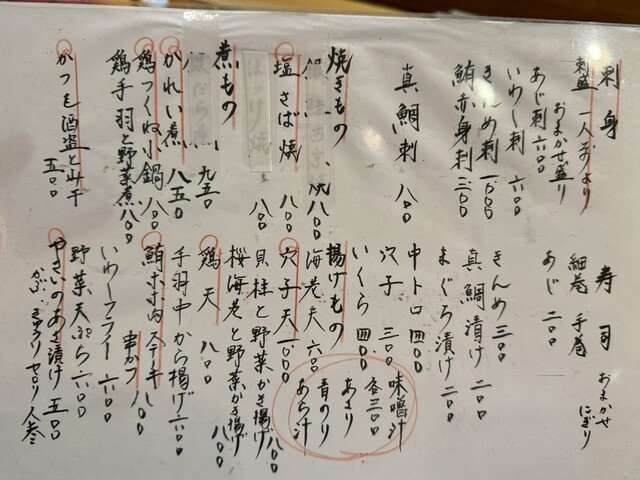 刺身
刺盛 一人前より
おまかせ盛り
あじ刺 六〇〇
いわし刺 六〇〇
きんめ刺 一〇〇〇
鮪赤身刺 一三〇〇
真鯛刺 八〇〇
焼きもの
八〇〇
塩さば焼 八〇〇
ほっけ焼 八〇〇
煮もの
銀だら煮 九五〇
かれい煮 八五〇
鶏つくね小鍋 八〇〇
鶏手羽と野菜煮 八〇〇
かつを酒盗と山干 五〇〇
寿司 おまかせ にぎり
細巻 手巻
あじ 二〇〇
きんめ 三〇〇
真鯛漬け 二〇〇
まぐろ漬け 二〇〇
中トロ 四〇〇
穴子 三〇〇
いくら 四〇〇
味噌汁
各三〇〇
あさり
青のり
あら汁
揚げもの
海老天 六〇〇
穴子天 一〇〇〇
貝柱と野菜かき揚げ 八〇〇
桜海老と野菜かき揚げ 八〇〇
鶏天 八〇〇
手羽中から揚げ 六〇〇
鮪ホホ肉ステーキ 八〇〇
串かつ
いわしフライ 六〇〇
野菜天ぷら 六〇〇
やさいのあさ漬け 五〇〇
かぶ、きゅうり セロリ 人参